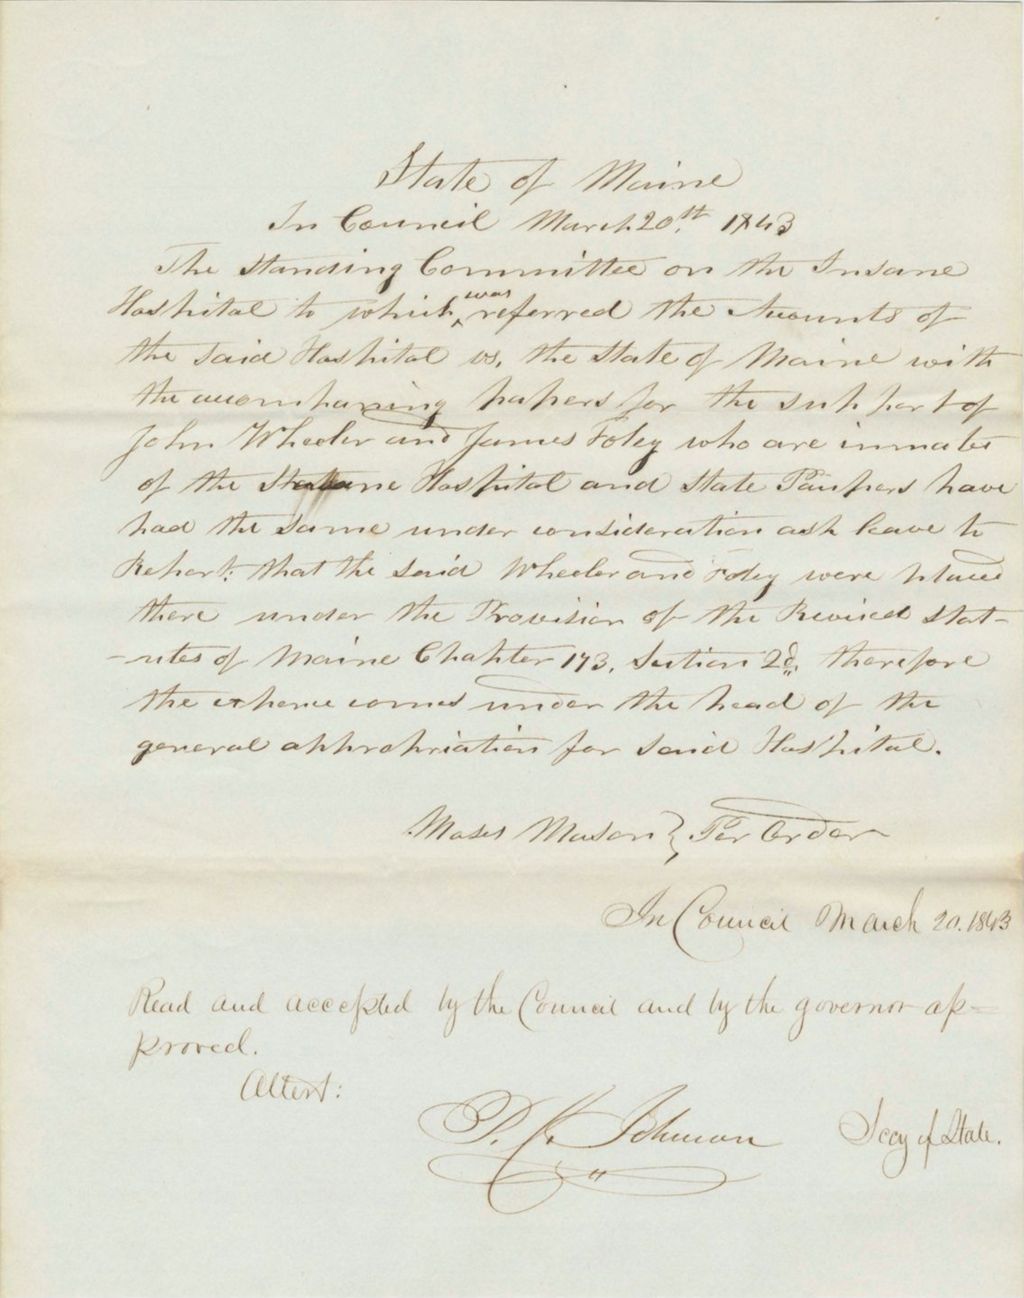 State of Maine
In Council March 20.th 1843
The Standing Committee on the Insane
Hospital to which was referred the Accounts of
the said Hospital vs. the State of Maine with
the accompaning papers for the support of
John Wheeler and James Foley who are inmates
of the Hospital and State Paupers have
had the same under consideration ask leave to
Report: that the said Wheeler and Foley were placed
there under the Provision of the Revised Stat-
-utes of Maine Chapter 173. Section 2d. therefore
the expence comes under the head of the
general appropriation for said Hospital.
Moses Mason } Per Order
In Council March 20. 1843
Read and accepted by the Council and by the governor ap=
proved.
Attest:
P. C. Johnson Secy of State.